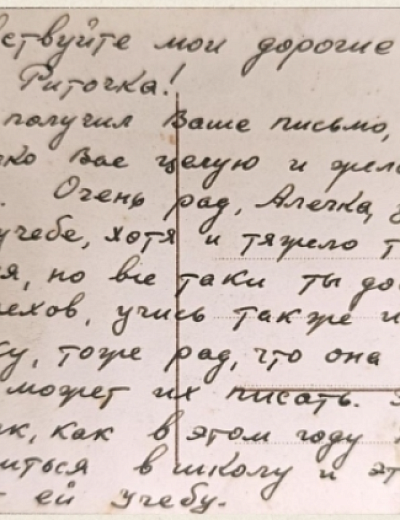 ствуйте мои дорогие
Риточка!
получил Ваше письмо,
ко Вас целую и жела
. Очень рад, Алечка,
учебе, хотя и тяжело т
я, но все таки ты до
ехов, учись также и
ку, тоже рад, что она
может их писать.
к, как в этом году
иться в школу и эт
ей учебу.